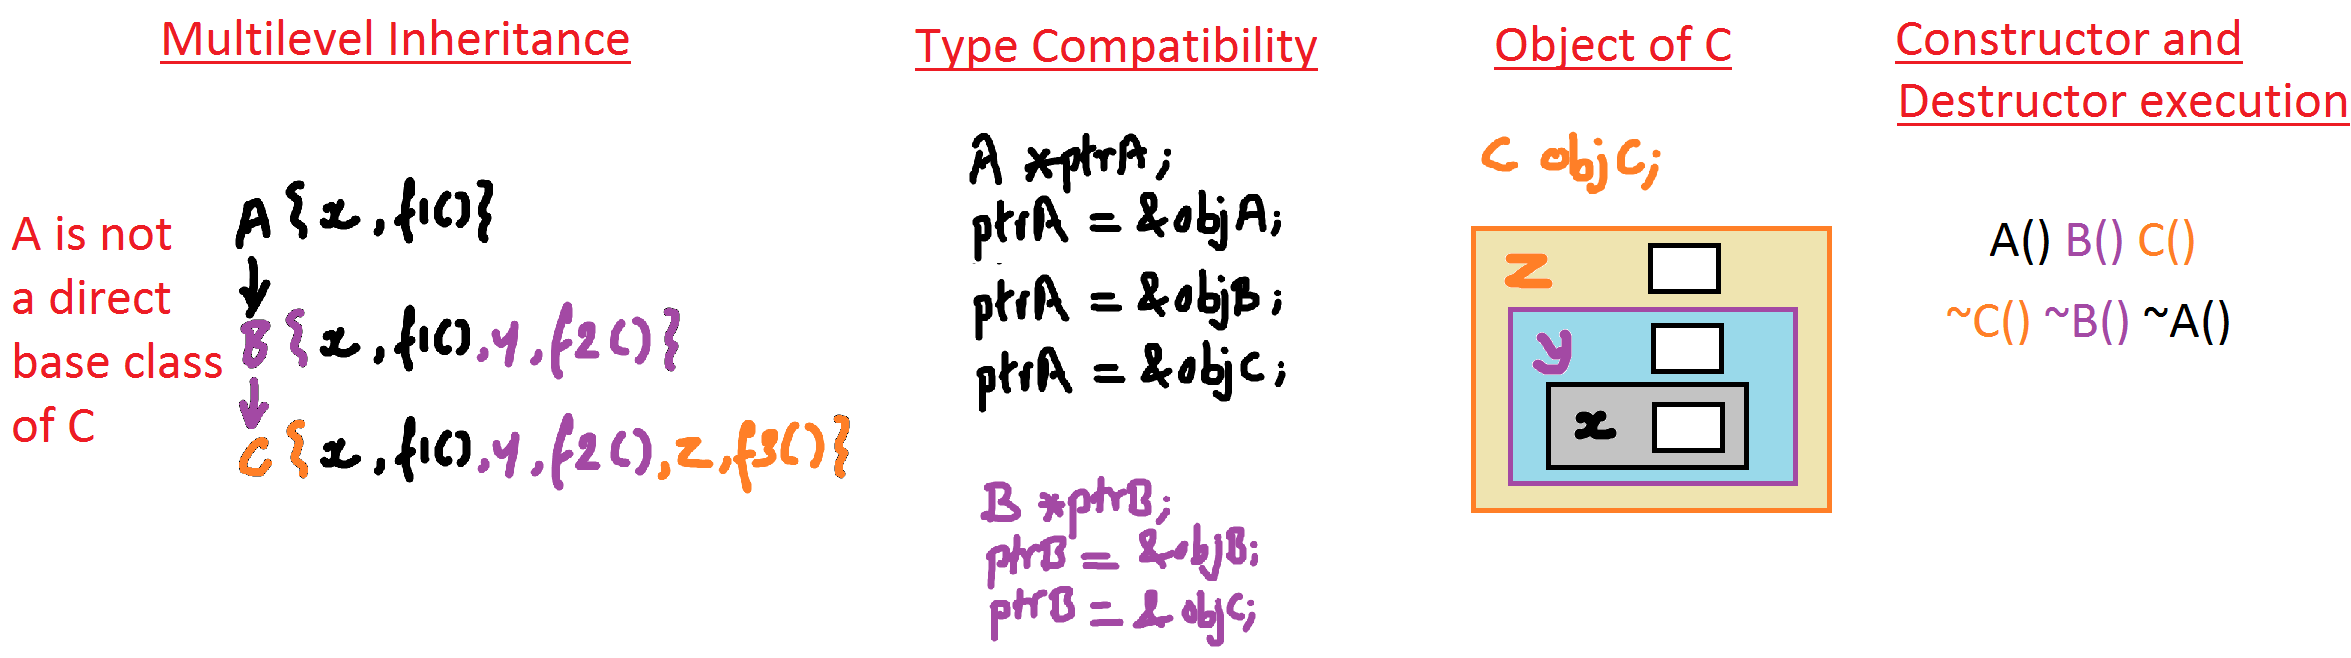 Multilevel Inheritance
A is not
a direct
base class
of C
A {x, f1()}
B {x, f1(), y, f2()}
C {x, f1(), y, f2(), z, f3()}
Type Compatibility
A *ptrA;
ptrA = &objA;
ptrA = &objB;
ptrA = &objC;
B *ptrB;
ptrB = &objB;
ptrB = &objC;
Object of C
C objC;
z
y
x
Constructor and
Destructor execution
A() B() C()
~C() ~B() ~A()